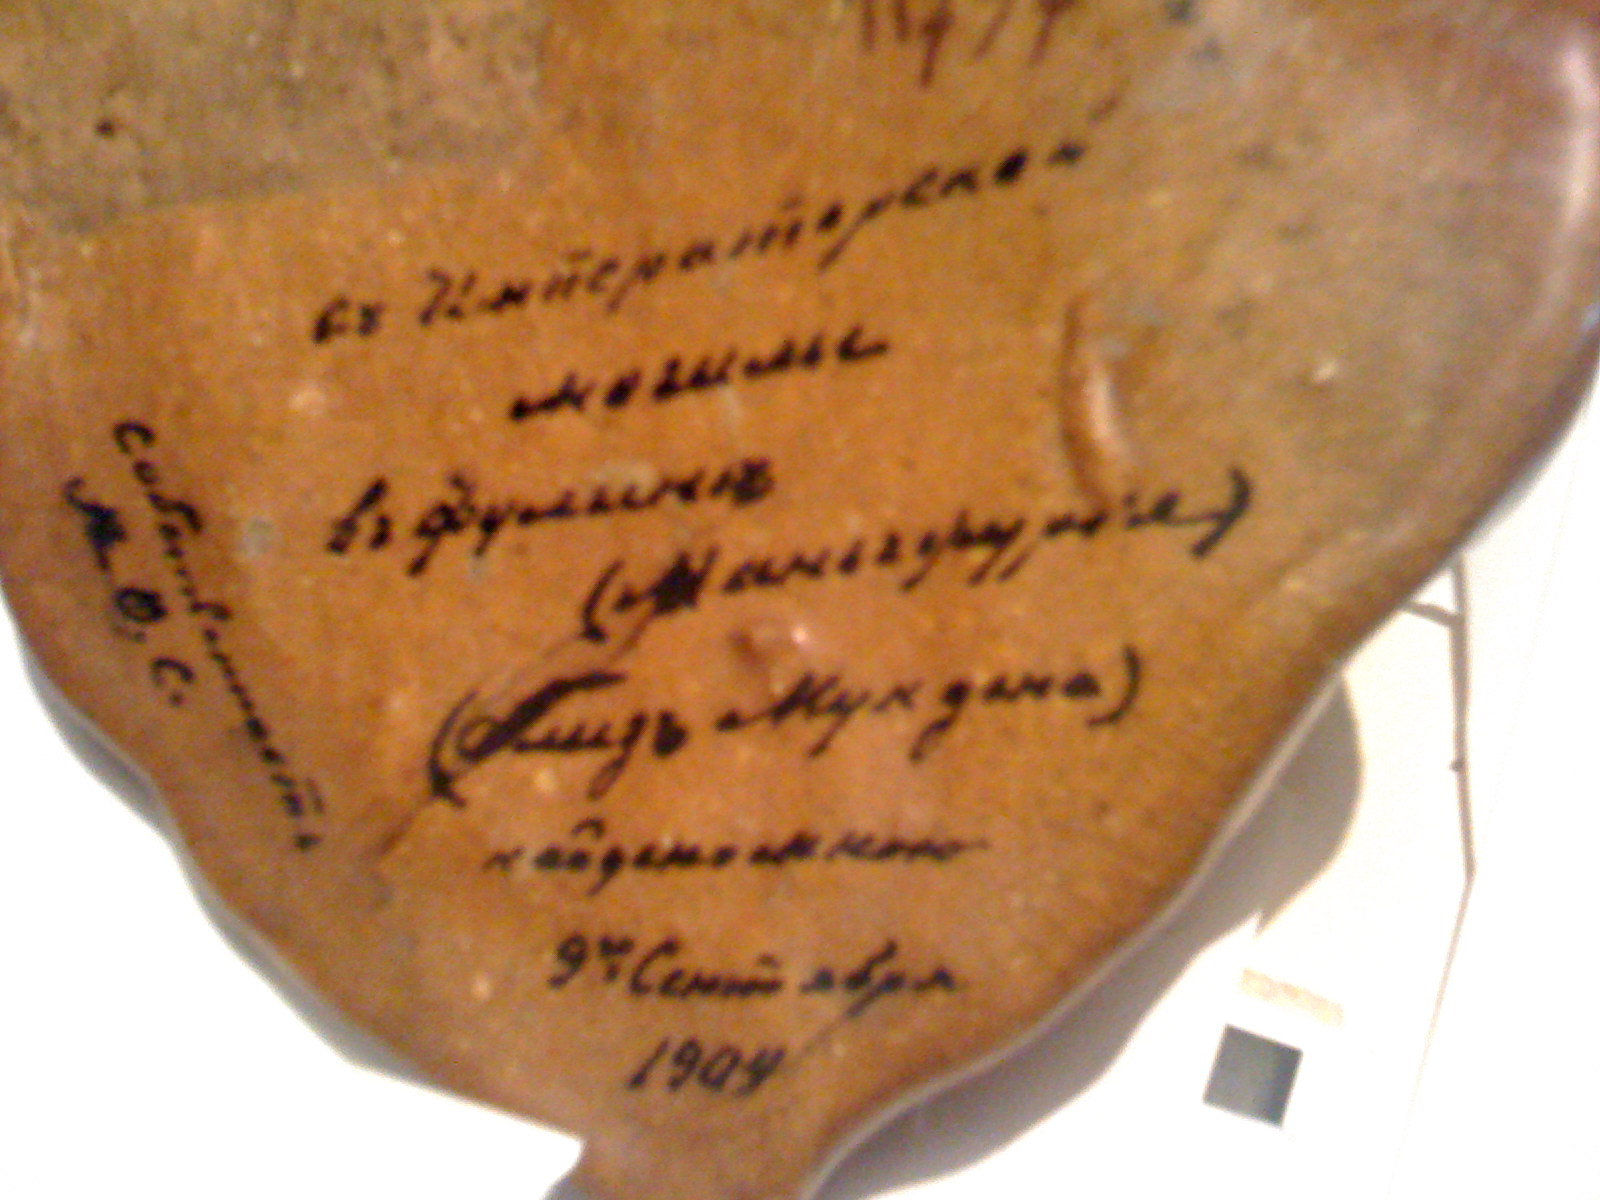 съ Императорской
могилы
въ Фулинѣ
(Маньчжурія)
(близь Мукдена)
найдено мною
9го Сентября
1904
Собственность
М. О. С.